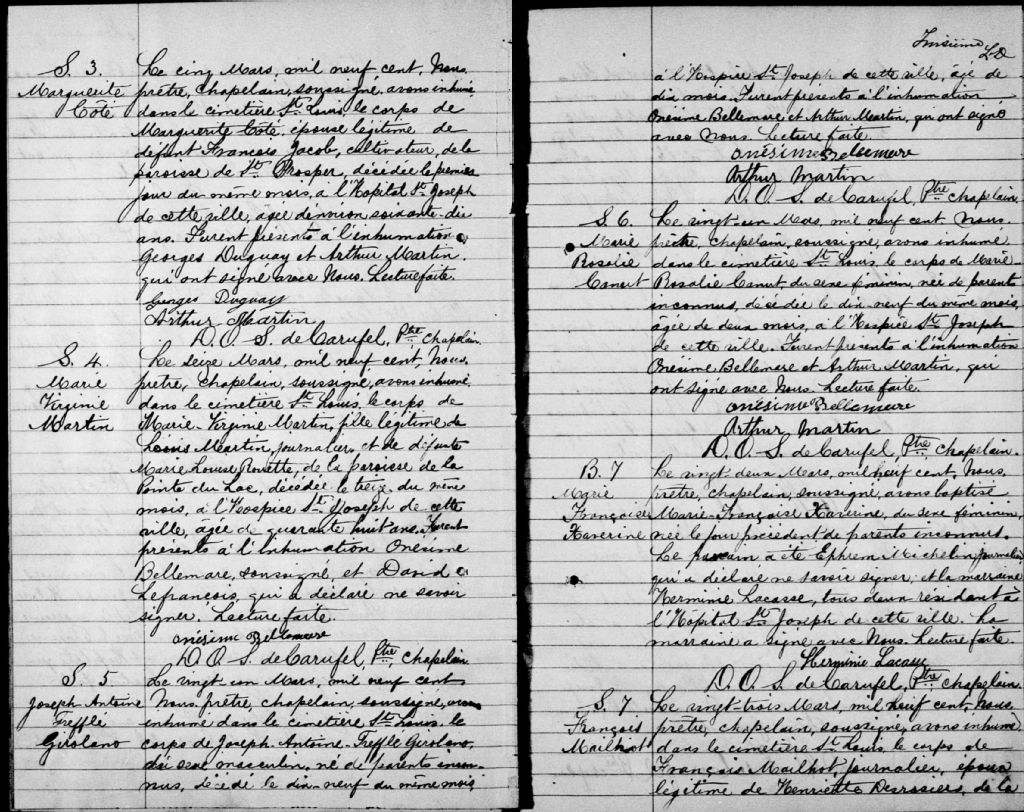 S. 3
Marguerite
Côté
Le cinq Mars, mil neuf cent, Nous
prêtre, chapelain, soussigné, avons inhumé
dans le cimetière St Louis, le corps de
Marguerite Côté, épouse légitime de
défunt François Jacob, cultivateur, de la
paroisse de St Prosper, décédée le premier
jour du même mois, à l'Hopital St Joseph
de cette ville, agée d'environ soixante-dix
ans. Furent présents à l'inhumation
Georges Duguay et Arthur Martin,
qui ont signé avec Nous. Lecture faite.
Georges Duguay
Arthur Martin
D. O. S. de Carufel, Ptre chapelain.
S. 4.
Marie
Virginie
Martin
Le seize Mars, mil neuf cent, Nous,
prêtre, chapelain, soussigné, avons inhumé,
dans le cimetière St Louis, le corps de
Marie-Virginie Martin, fille légitime de
Louis Martin, journalier, et de défunte
Marie Louise Rouette, de la paroisse de la
Pointe du Lac, décédée le treize du même
mois, à l'Hospice St Joseph de cette
ville, agée de quarante huit ans. Furent
présents à l'inhumation Onésime
Bellemare, soussigné, et David
Lefrancois, qui a déclaré ne savoir
signer. Lecture faite.
onésime Bellemare
D. O. S. de Carufel, Ptre chapelain.
S. 5
Joseph Antoine
Trefflé
Girolano
Le vingt un Mars, mil neuf cent
Nous, prêtre, chapelain, soussigné, avons
inhumé dans le cimetière St Louis, le
corps de Joseph-Antoine-Trefflé Girolano,
du sexe masculin, né de parents incon-
nus, décédé le dix-neuf du même mois
Troisième
à l'Hospice St Joseph de cette ville, âgé de
dix mois. Furent présents à l'inhumation
Onésime Bellemare et Arthur Martin, qui ont signé
avec Nous. Lecture faite.
onésime Bellemare
Arthur Martin
D. O. S. de Carufel, Ptre chapelain.
S. 6.
Marie
Rosalie
Canut
Le vingt-un Mars, mil neuf cent Nous
prêtre, chapelain, soussigné, avons inhumé
dans le cimetière St Louis, le corps de Marie
Rosalie Canut du sexe féminin, née de parents
inconnus, décédée le dix-neuf du même mois,
âgée de deux mois, à l'Hospice St Joseph
de cette ville. Furent présents à l'inhumation
Onésime Bellemare et Arthur Martin, qui
ont signé avec Nous. Lecture faite.
onésime Bellemare
Arthur Martin
D. O. S. de Carufel, Ptre chapelain.
B. 7
Marie
Françoise
Xaverine
Le vingt-deux Mars, mil neuf cent, Nous
prêtre, chapelain, soussigné, avons baptisé
Marie-Françoise Xaverine, du sexe féminin,
née le jour précédent de parents inconnus.
Le parrain a été Ephrem Michelin, journalier
qui a déclaré ne savoir signer; et la marraine
Herminie Lacasse, tous deux résidant à
l'Hôpital St Joseph de cette ville. La
marraine a signé avec Nous. Lecture faite.
Herminie Lacasse
D. O. S. de Carufel, Ptre chapelain.
S. 7
François
Mailhot
Le vingt-trois Mars, mil neuf cent, Nous
prêtre, chapelain, soussigné, avons inhumé
dans le cimetière St Louis, le corps de
François Mailhot, journalier, époux
légitime de Henriette Desrosiers, de la